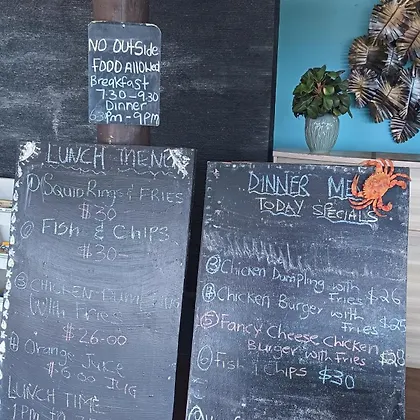 NO OUTSide
FOOD AllOWed
Breakfast
7.30-9.30
Dinner
6.30PM-9PM
LUNCH MENU
① SQUID RINGS & FRIES
$30
② FISH & CHIPS
$30
③ CHICKEN
WITH FRIES
$26.00
④ Orange Juice
JUG
LUNCH TIME
DINNER
TODAY SPECIALS
③ Chicken Dumpling with
Fries $26
④ Chicken Burger with
Fries
⑤ FANCY CHEESE CHICKEN
BURGER with FRIES $28
⑥ Fish & Chips $30